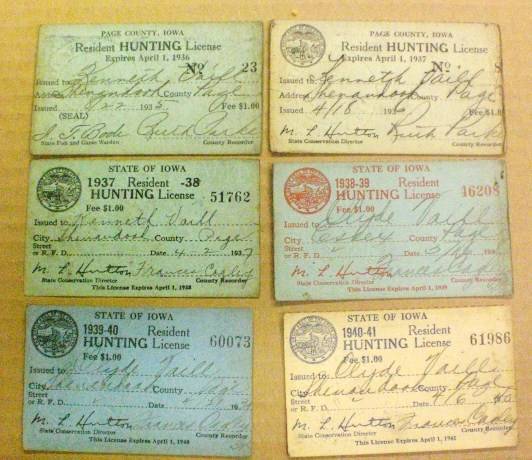 PAGE COUNTY, IOWA
Resident HUNTING License
Expires April 1, 1936
No 23
Issued to Kenneth Vaill
Address Shenandoah County Page
Issued 9/22 1935 Fee $1.00
(SEAL)
Ruth Parke
State Fish and Game Warden County Recorder
PAGE COUNTY, IOWA
Resident HUNTING License
Expires April 1, 1937
No. 8
Issued to Kenneth Vaill
Address Shenandoah County Page
Issued 4/18 193 Fee $1.00
M. L. Hutton Ruth Parke
State Conservation Director County Recorder
STATE OF IOWA
1937 Resident -38
HUNTING License
51762
Fee $1.00
Issued to Kenneth Vaill
City Shenandoah County Page
Street
or R. F. D. Date 4-2 1937
M. L. Hutton Frances Cagley
State Conservation Director County Recorder
This License Expires April 1, 1938
STATE OF IOWA
1938-39 Resident
HUNTING License
Fee $1.00
Issued to Clyde Vaill
City Essex County Page
Street
or R. F. D. Date
M. L. Hutton Frances Cagley
State Conservation Director County Recorder
This License Expires April 1, 1939
STATE OF IOWA
1939-40 Resident
HUNTING License
Fee $1.00
60073
Issued to Clyde Vaill
City Shenandoah County Page
Street
or R. F. D. Date
M. L. Hutton Frances Cagley
State Conservation Director County Recorder
This License Expires April 1, 1940
STATE OF IOWA
1940-41 Resident
HUNTING License
Fee $1.00
61986
Issued to Clyde Vaill
City Shenandoah County Page
Street
or R. F. D. Date 4/6 1940
M. L. Hutton Frances Cagley
State Conservation Director County Recorder
This License Expires April 1, 1941